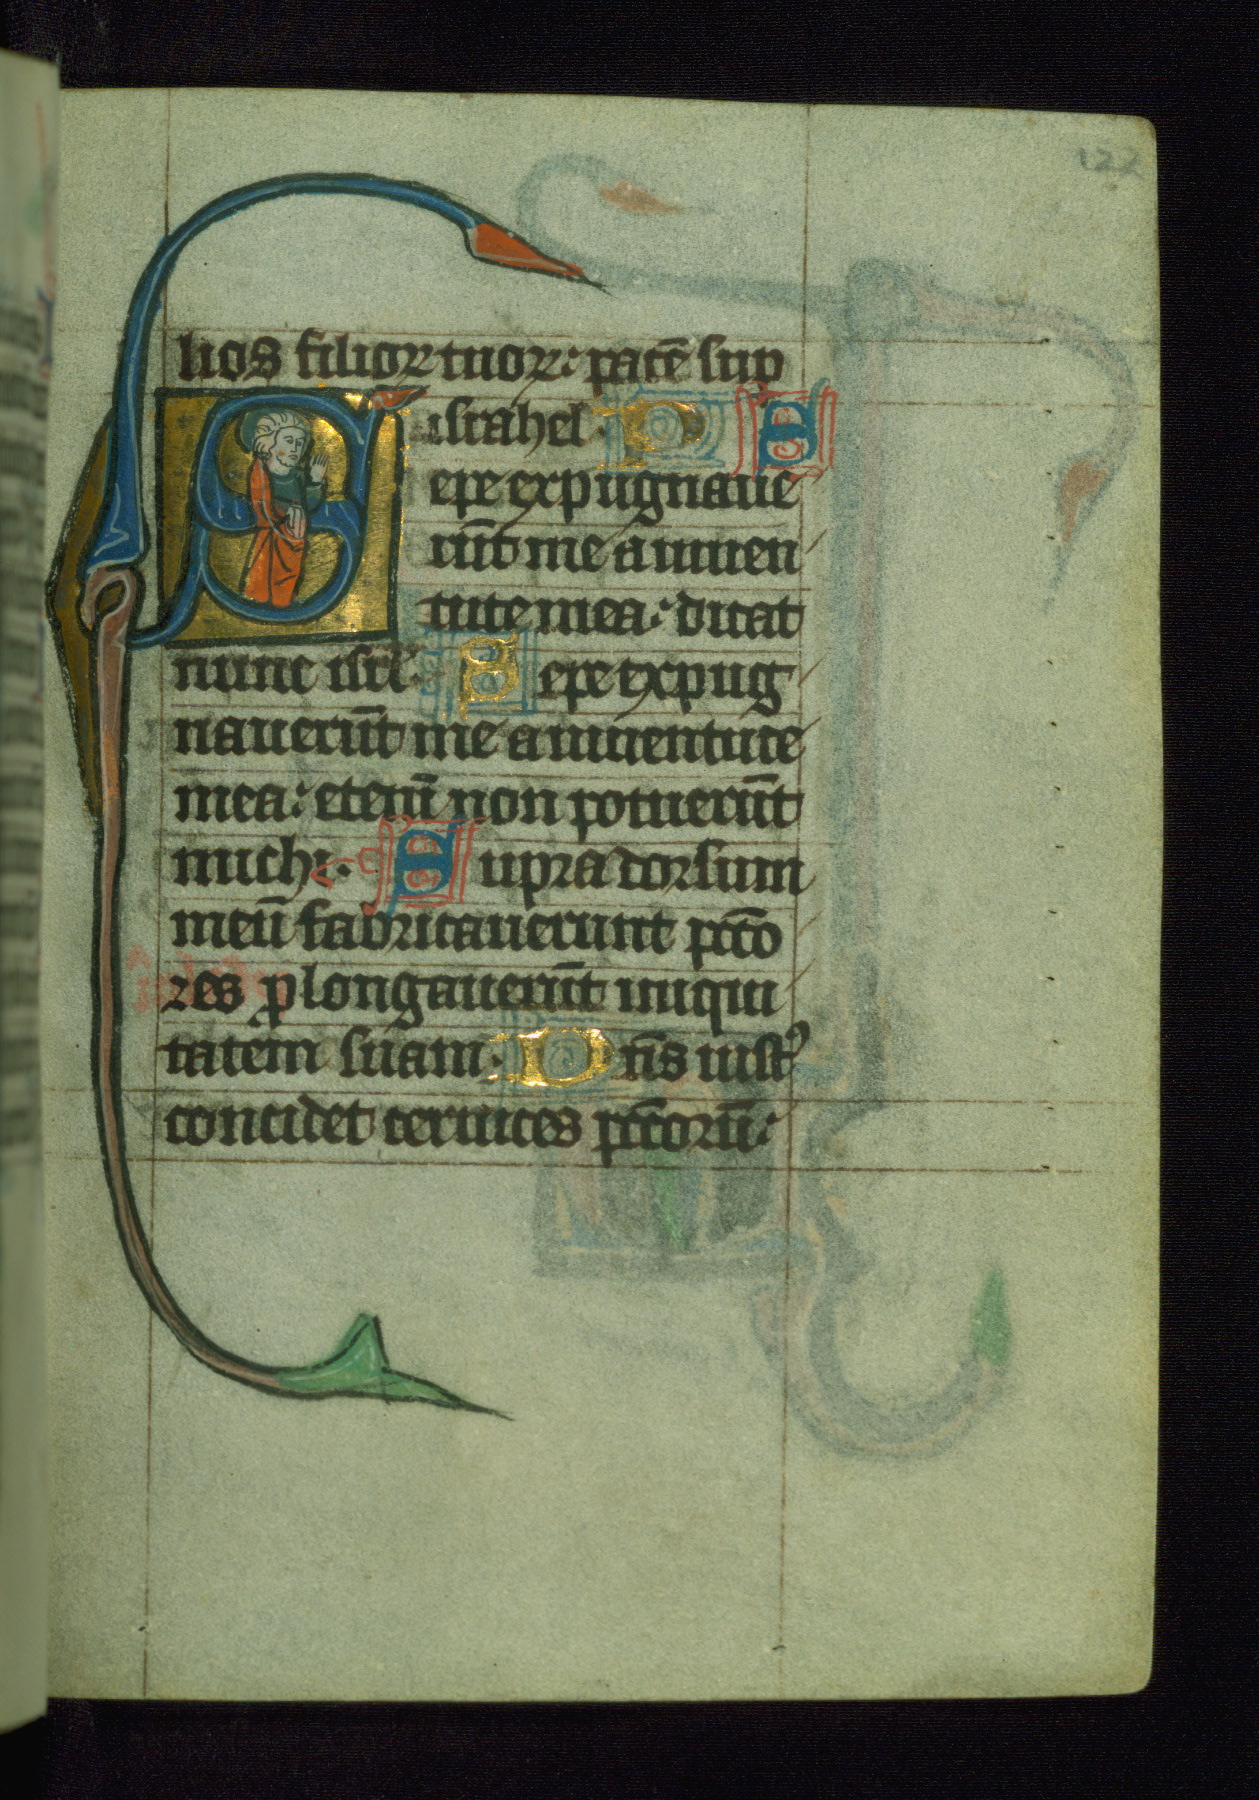 122
lios filioꝝ tuoꝝ: pacē sup
israhel. P S
epe expugnaue
rūt me a iuuen
tute mea: dicat
nunc isrl̄. S epe expug
nauerūt me a iuuentute
mea: etenī non potuerūt
michi. Supra dorsum
meū fabricauerunt pctō
res ꝓlongauerūt iniqui
tatem suam. Dn̄s iustꝰ
concidet ceruices pctōrū: